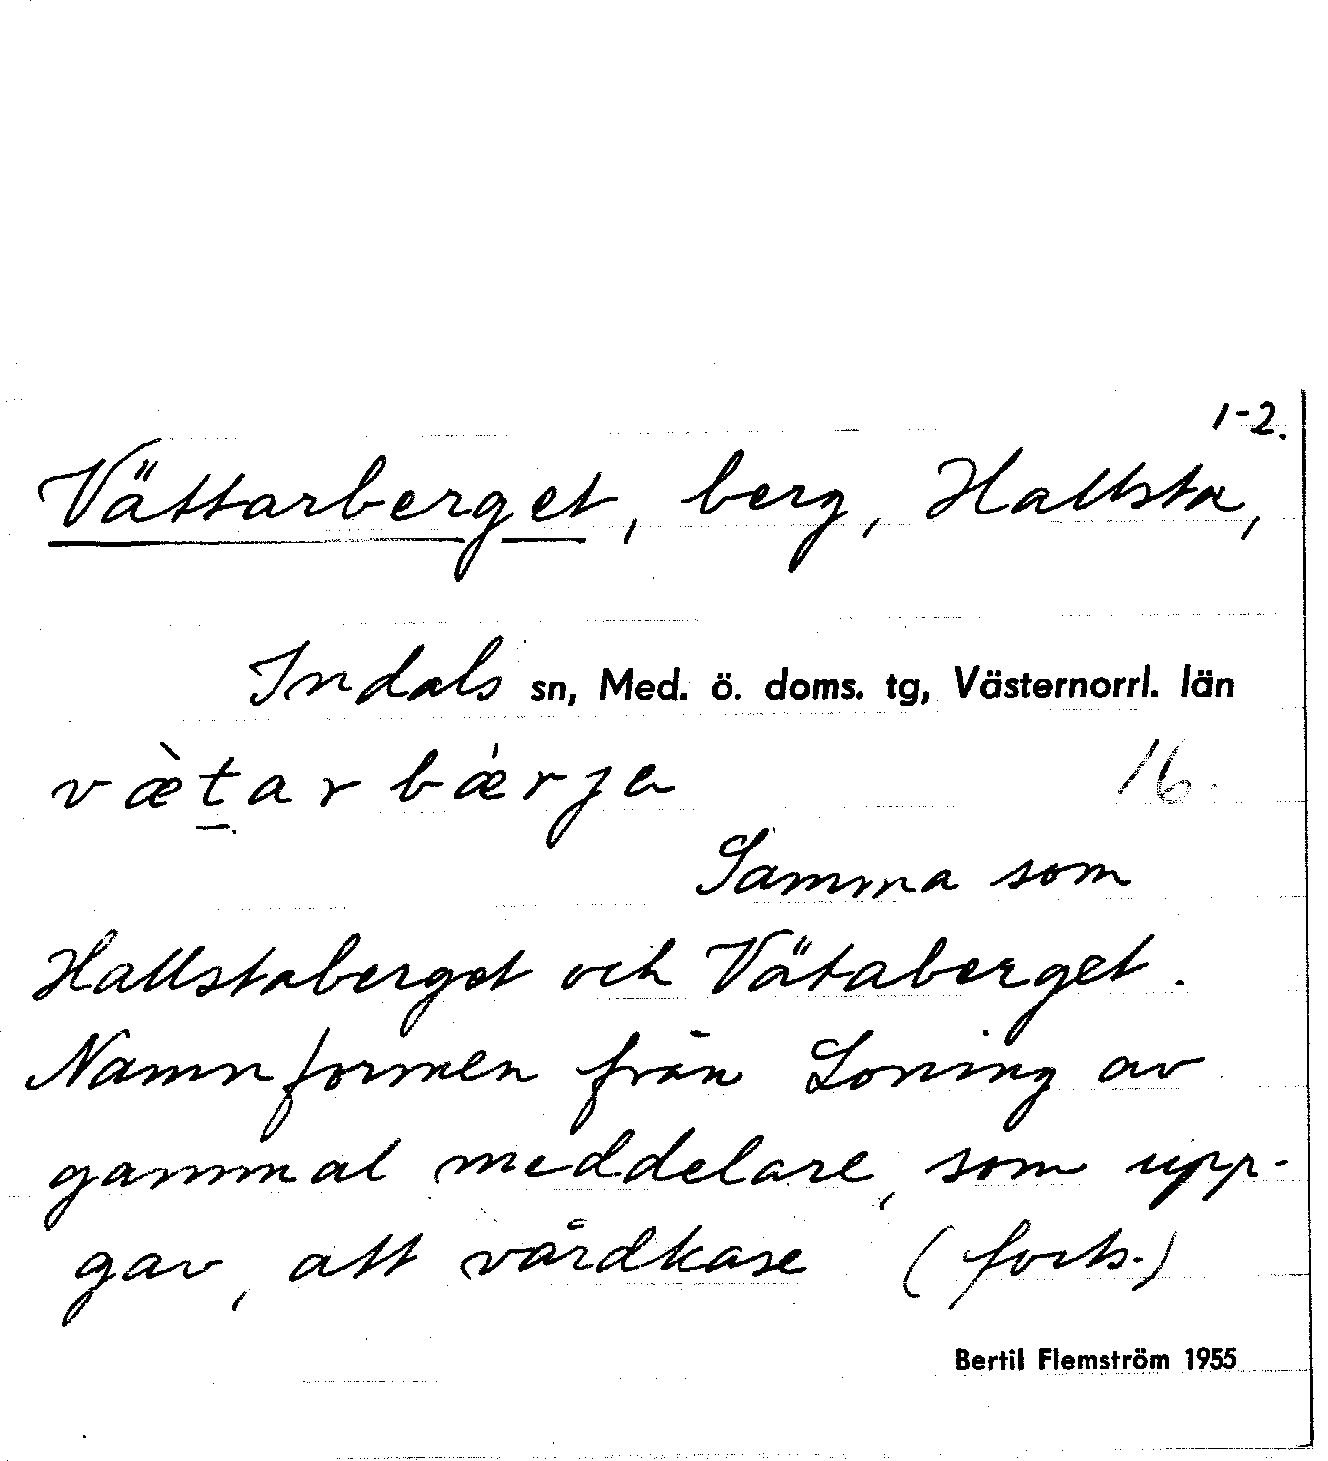 1-2.
Vättarberget, berg, Hallsta,
Indals sn, Med. ö. doms. tg, Västernorrl. län
væ̀t̠arbǽrje
16.
Samma som
Hallstaberget och Vätaberget.
Namnformen från Loning av
gammal meddelare, som upp-
gav, att vårdkase (forts.)
Bertil Flemström 1955